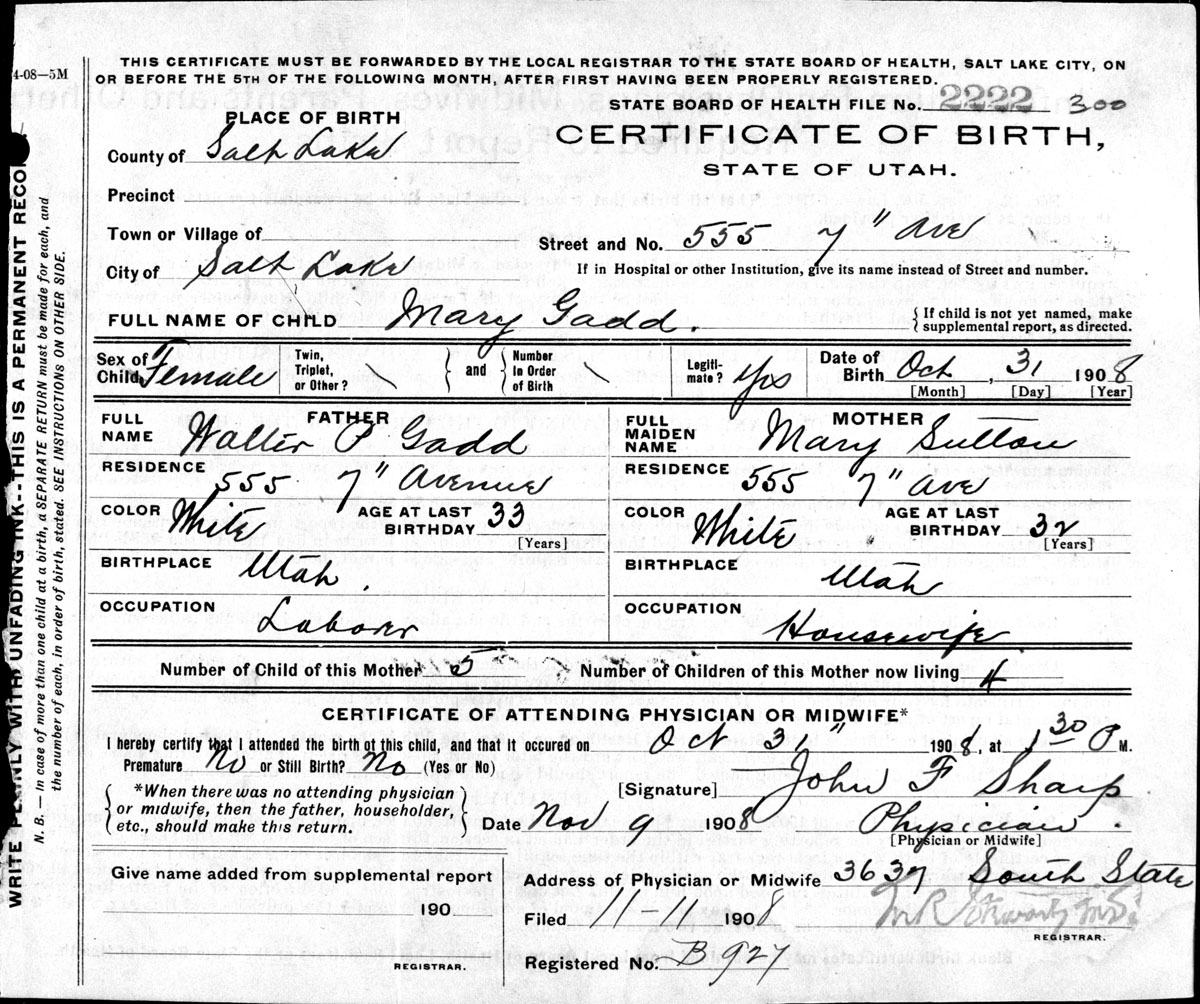 4-08—5M
THIS CERTIFICATE MUST BE FORWARDED BY THE LOCAL REGISTRAR TO THE STATE BOARD OF HEALTH, SALT LAKE CITY, ON
OR BEFORE THE 5TH OF THE FOLLOWING MONTH, AFTER FIRST HAVING BEEN PROPERLY REGISTERED.
STATE BOARD OF HEALTH FILE No. 2222 300
PLACE OF BIRTH
CERTIFICATE OF BIRTH,
STATE OF UTAH.
County of Salt Lake
Precinct
Town or Village of
Street and No. 555 7" Ave
City of Salt Lake
If in Hospital or other Institution, give its name instead of Street and number.
FULL NAME OF CHILD Mary Gadd.
{ If child is not yet named, make
supplemental report, as directed.
Sex of Child Female
Twin, Triplet, or Other? \ } and { Number In Order of Birth \
Legitimate? Yes
Date of Birth Oct, 31 1908
[Month] [Day] [Year]
FATHER
FULL NAME Walter P Gadd
RESIDENCE 555 7" Avenue
COLOR White AGE AT LAST BIRTHDAY 33 [Years]
BIRTHPLACE Utah
OCCUPATION Laborer
MOTHER
FULL MAIDEN NAME Mary Sutton
RESIDENCE 555 7" Ave
COLOR White AGE AT LAST BIRTHDAY 32 [Years]
BIRTHPLACE Utah
OCCUPATION Housewife
Number of Child of this Mother 5 Number of Children of this Mother now living 4
CERTIFICATE OF ATTENDING PHYSICIAN OR MIDWIFE*
I hereby certify that I attended the birth of this child, and that it occured on Oct 31" 1908, at 1 30 P M.
Premature No or Still Birth? No (Yes or No)
{ *When there was no attending physician
or midwife, then the father, householder,
etc., should make this return. }
[Signature] John F Sharp
Date Nov 9 1908 Physician.
[Physician or Midwife]
Give name added from supplemental report
190
REGISTRAR.
Address of Physician or Midwife 3637 South State
Filed 11-11 1908
REGISTRAR.
Registered No. B 927
WRITE PLAINLY WITH UNFADING INK--THIS IS A PERMANENT RECO
N. B.—In case of more than one child at a birth, a SEPARATE RETURN must be made for each, and
the number of each, in order of birth, stated. SEE INSTRUCTIONS ON OTHER SIDE.